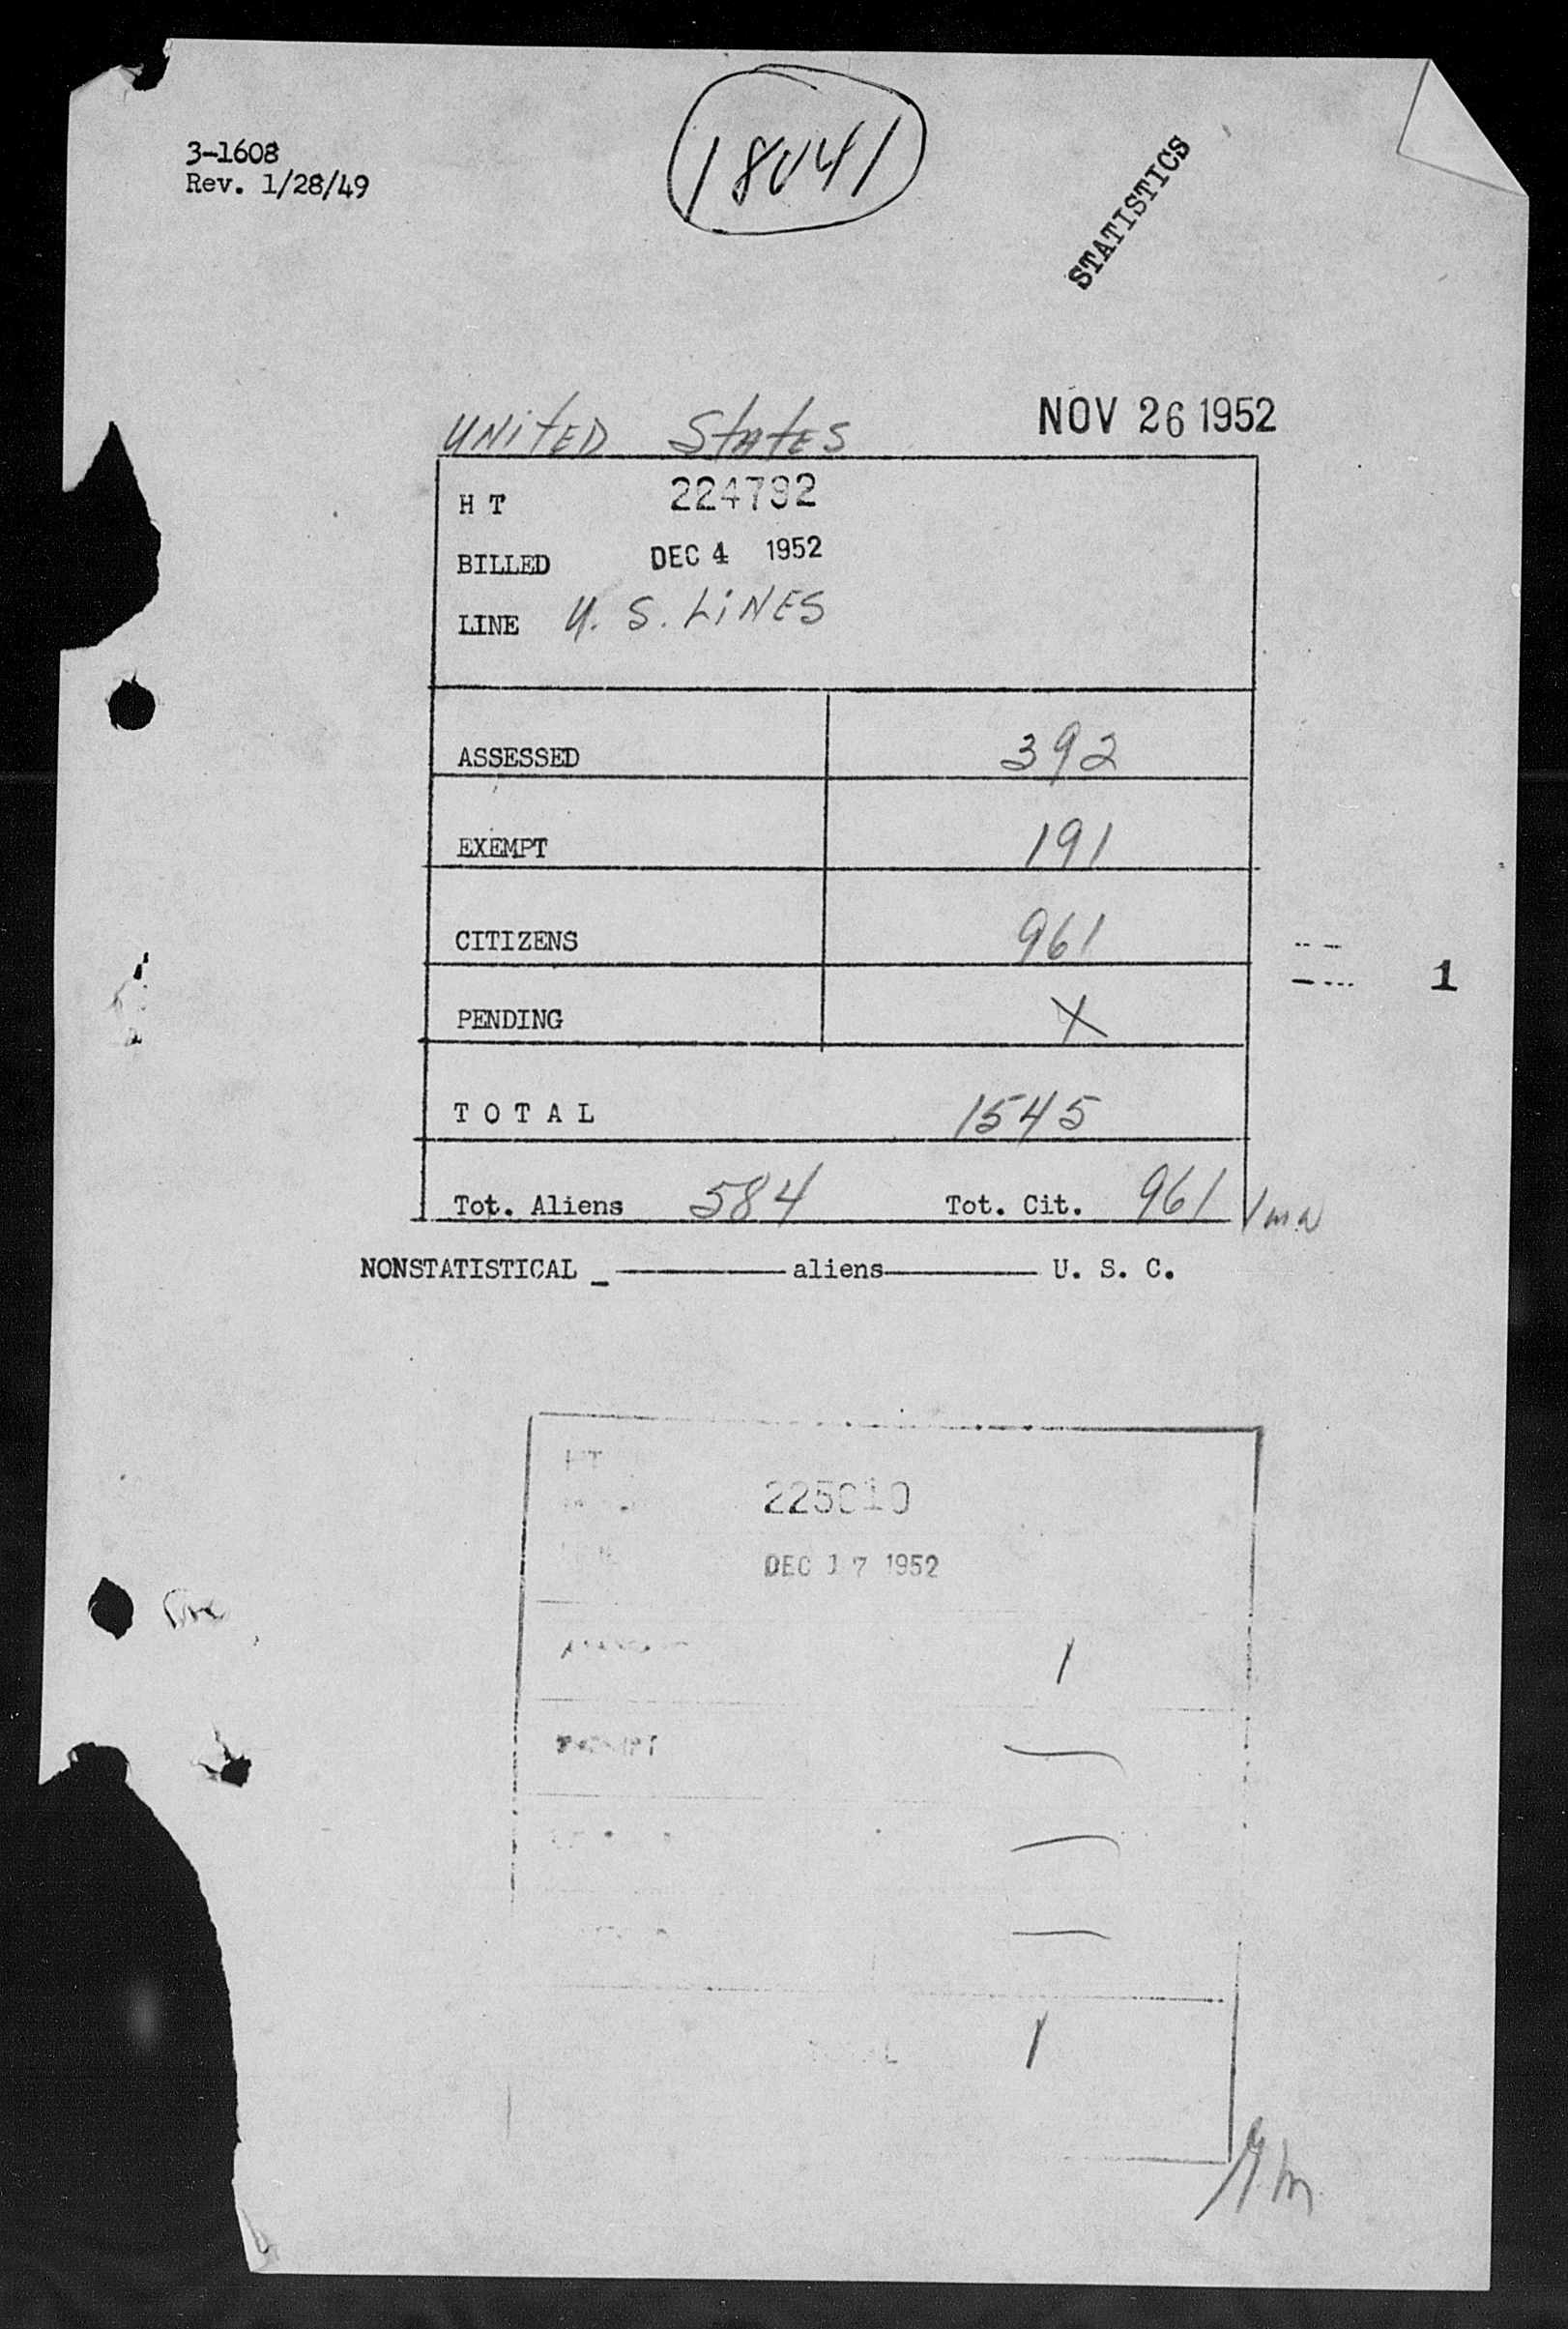 18041
3-1608
Rev. 1/28/49
STATISTICS
UNITED STATES NOV 26 1952
H T 224792
BILLED DEC 4 1952
LINE U. S. LINES
ASSESSED 392
EXEMPT 191
CITIZENS 961
1
PENDING X
T O T A L 1545
Tot. Aliens 584 Tot. Cit. 961
NONSTATISTICAL _ aliens U. S. C.
HT
225010
DEC 17 1952
1
EXEMPT —
—
—
1